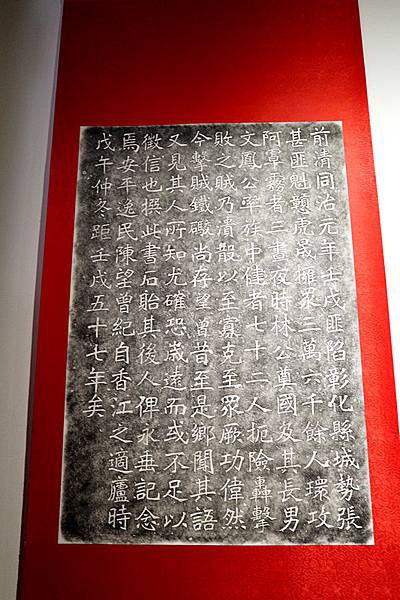 前清同治元年壬戌匪陷彰化縣城勢張
甚匪魁戇虎晟擁眾二萬六千餘人環攻
阿罩霧者三晝夜時林公奠國及其長男
文鳳公率族中健者七十二人扼險轟擊
敗之賊乃潰散以至寡克至眾厥功偉然
今擊賊鐵礮尚存望曾昔至是鄉聞其語
又見其人所知尤確恐歲遠而或不足以
徵信也撰此書石貽其後人俾永垂記念
焉安平逸民陳望曾紀自香江之適廬時
戊午仲冬距壬戌五十七年矣